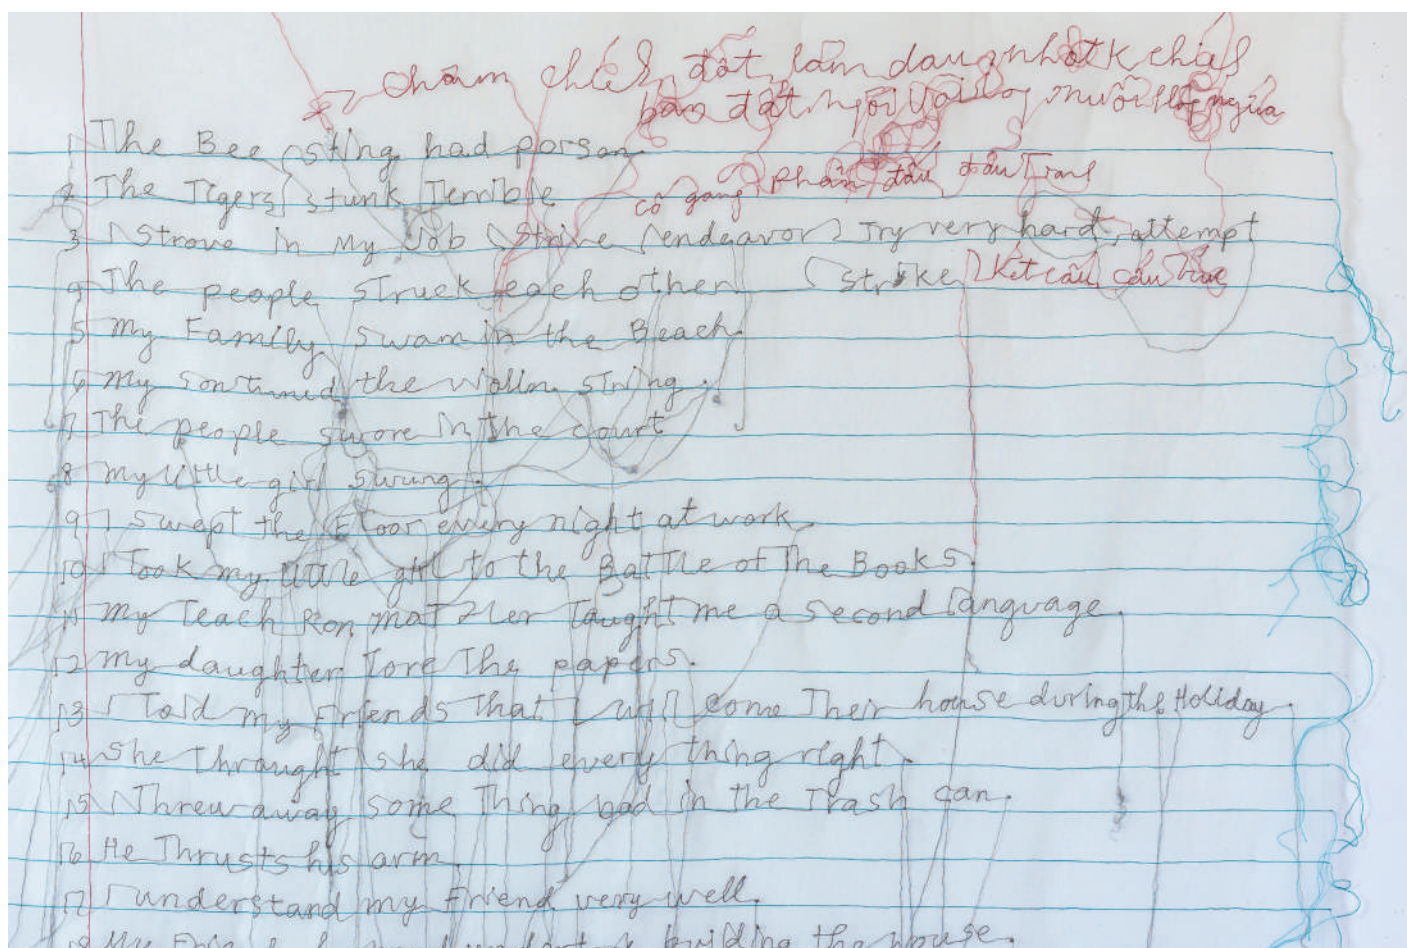 châm chích, đốt, làm đau, nhột, k chịu
bắn đất ngồi với
The Bee (sting had poison
2 The Tigers stunk Terrible
cố gắng, phấn đấu đấu Tranh
3 I strove in my Job (strive (endeavor) Try very hard, attempt
4 The people struck each other. (strike) Kết cấu, cấu trúc
5 My Family swam in the Beach.
6 My son tuned the violin string.
7 The people swore in the court
8 My little girl swung.
9 I swept the Floor every night at work.
10 I Took my little girl to the Battle of The Books.
11 My Teach Ron Taught me a second Language.
12 My daughter Tore The papers.
13 I Told my Friends That I will come Their house during the Holiday.
14 She throught she did every thing right.
15 I Threw away some Thing bad in the Trash can.
16 He Thrusts his arm.
17 I understand my Friend very well.
18 My building the house.